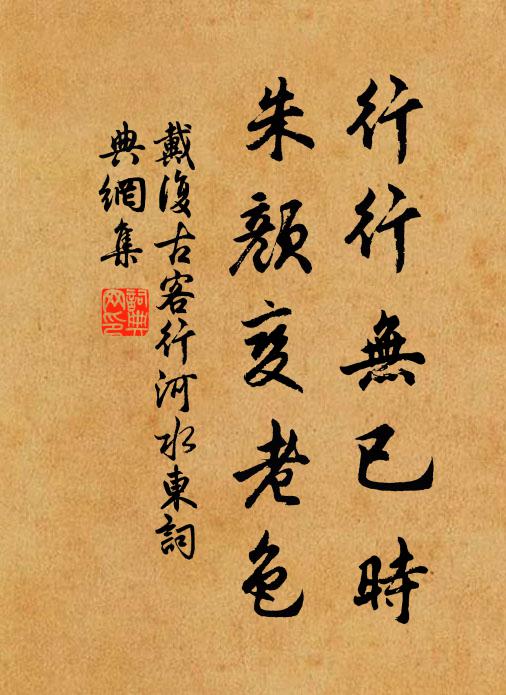 行行無已時
朱顔变老色
戴復古客行河水東詞
典網集
詞典网印